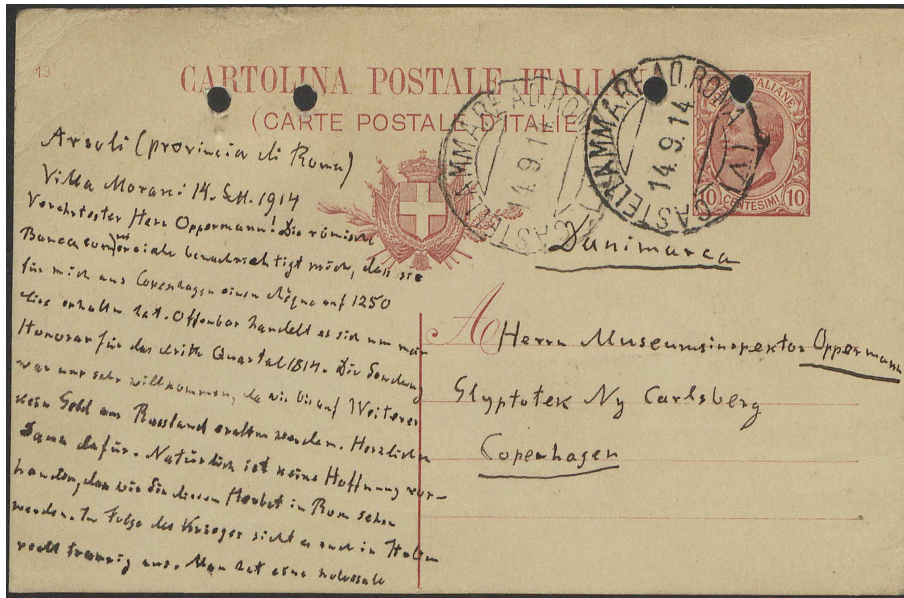 13
CARTOLINA POSTALE ITALIANA
(CARTE POSTALE D'ITALIE)
CASTELLAMMARE AD. ROMA
14.9.14
CASTELLAMMARE AD. ROMA
14.9.14
10 CENTESIMI 10
Arsoli (provincia di Roma)
Villa Morani 14. Sett. 1914
Verehrtester Herr Oppermann! Die römische
Banca commerciale benachrichtigt mich, dass sie
für mich aus Copenhagen einen chèque auf 1250
Lire erhalten hat. Offenbar handelt es sich um mein
Honorar für das dritte Quartal 1814. Die Sendung
war uns sehr willkommen, da wir bis auf Weiteres
kein Geld aus Russland eralten werden. Herzlichen
Dank dafür. Natürlich ist keine Hoffnung vor-
handen, dass wir Sie diesen Herbst in Rom sehen
werden. In Folge des Krieges sieht es auch in Italien
recht traurig aus. Man hat eine kolossale
Danimarca
A Herrn Museumsinspektor Oppermann
Glyptotek Ny Carlsberg
Copenhagen